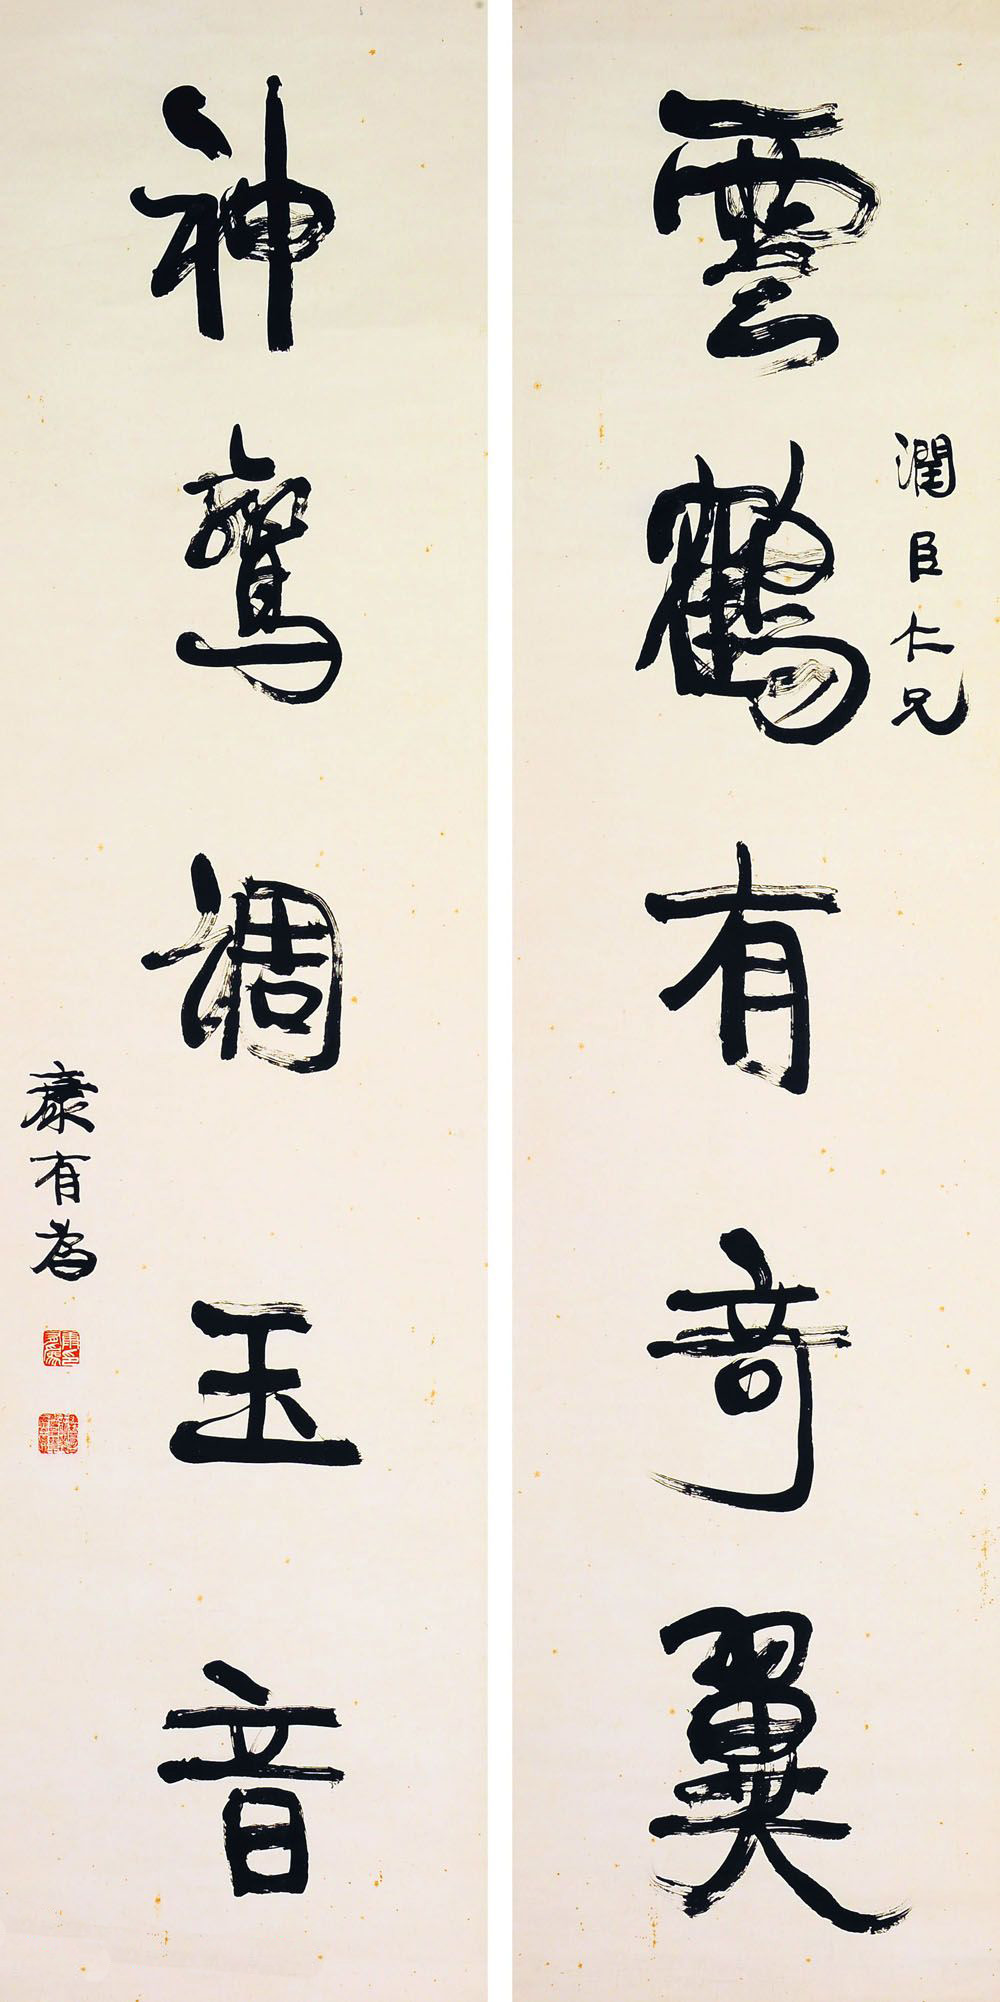 雲鶴有奇翼
潤臣仁兄
神鸞調玉音
康有為